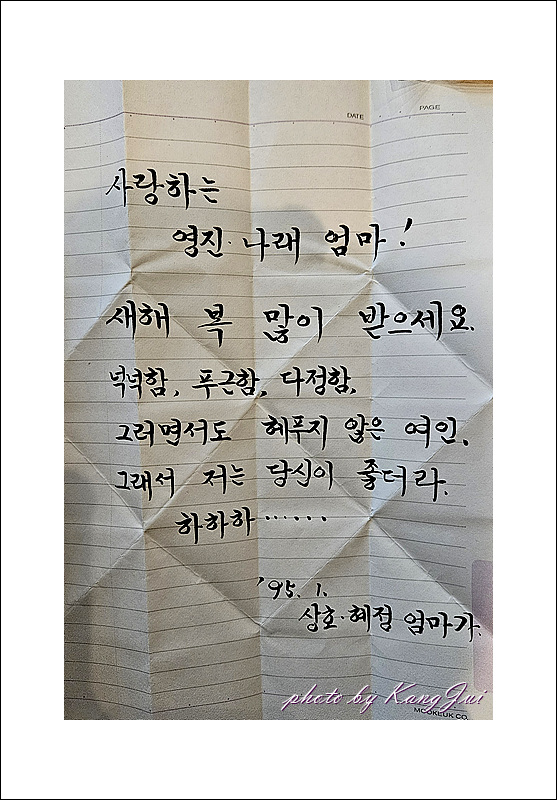 DATE
PAGE
사랑하는
영진·나래 엄마!
새해 복 많이 받으세요.
넉넉함, 푸근함, 다정함,
그러면서도 헤푸지 않은 여인.
그래서 저는 당신이 좋더라.
하하하······
'95. 1.
상호·혜정 엄마가.
photo by KangJui
MOOKEUK CO.